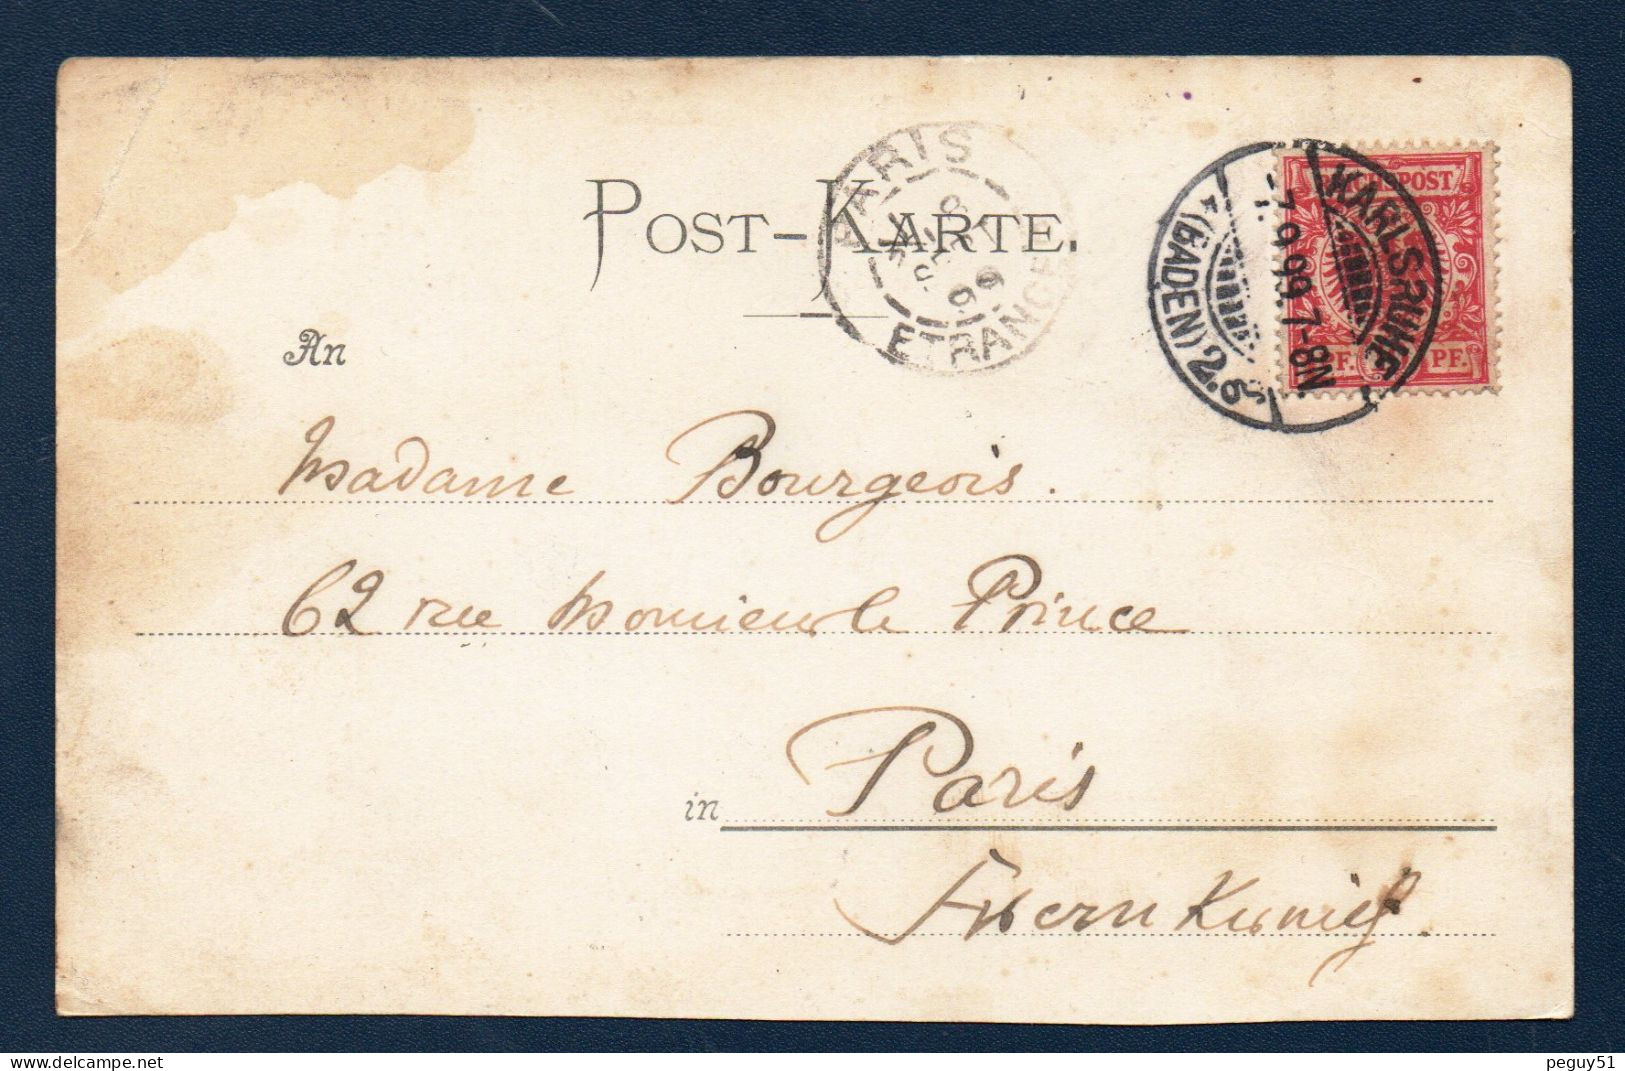 POST-KARTE.
PARIS
ETRANGER
KARLSRUHE
7.9.99.7-8N.
*(BADEN)2.a
REICHSPOST
PF. PF.
An
Madame Bourgeois.
62 rue Monsieur le Prince
in Paris
peguy51